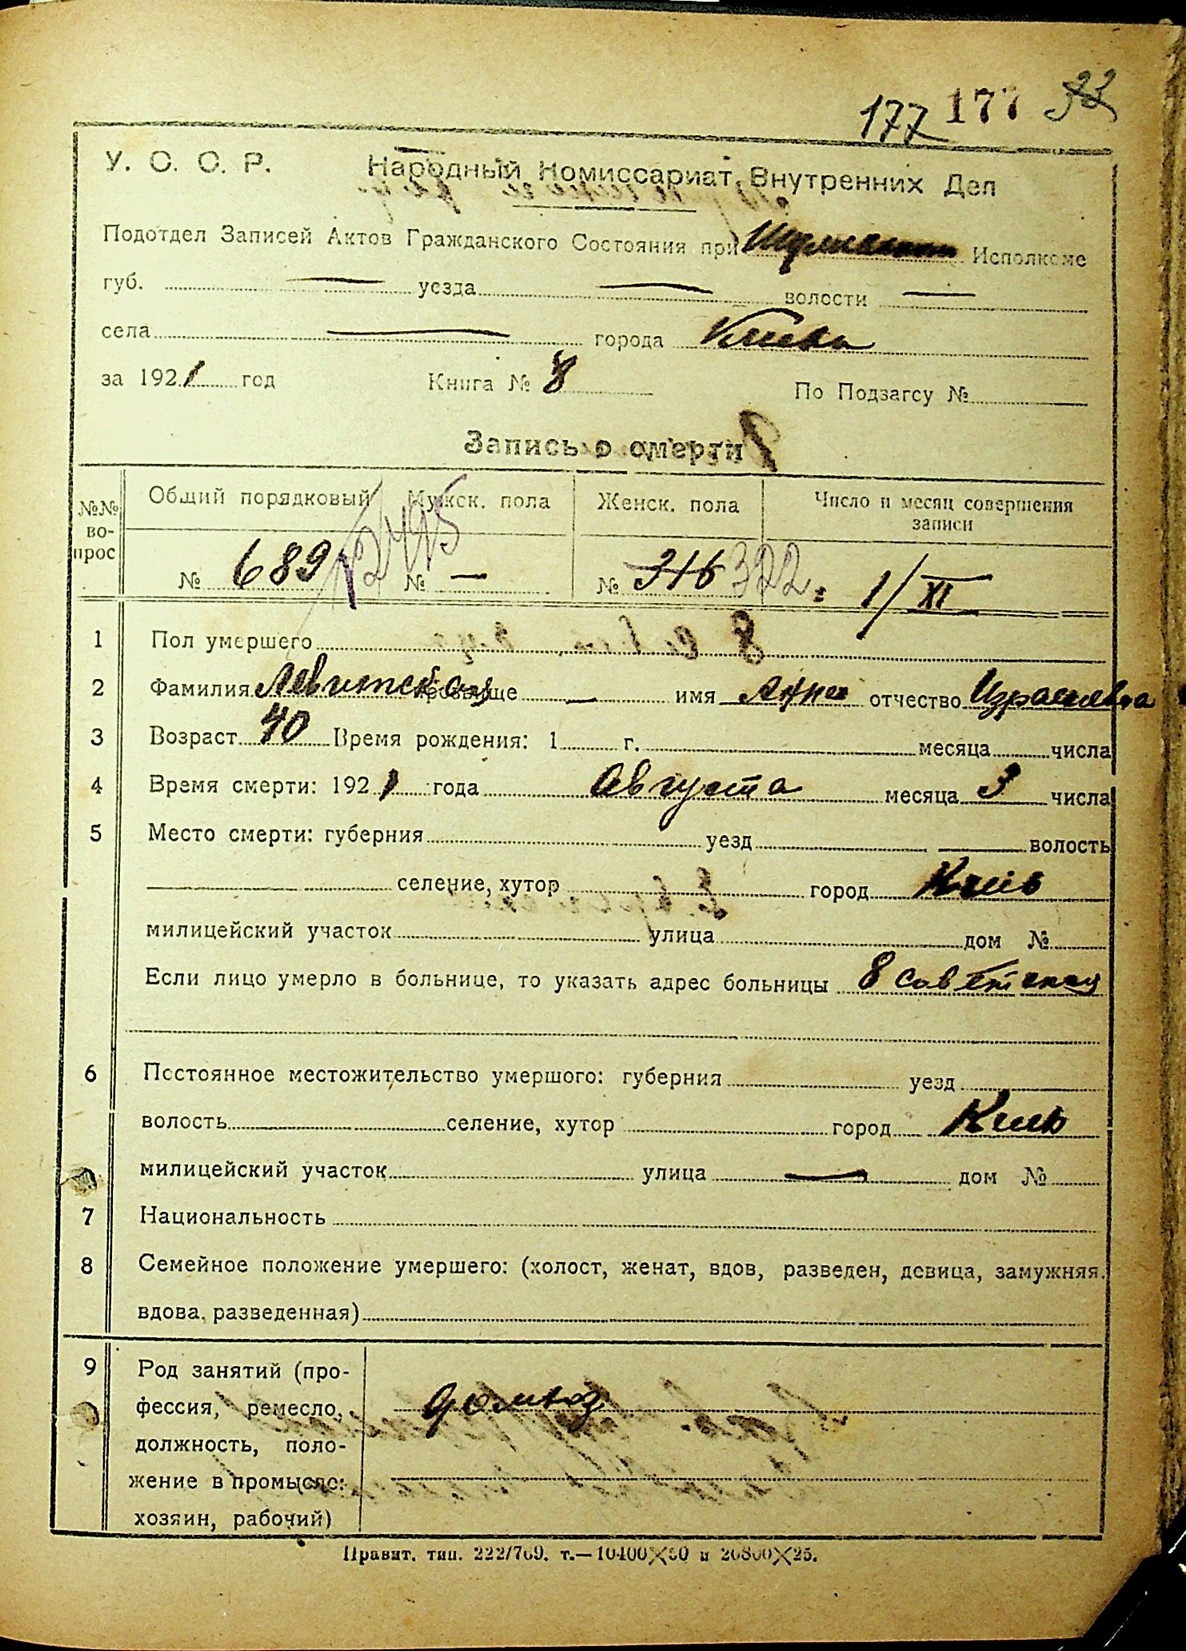 177 177
У. С. С. Р. Народный Комиссариат Внутренних Дел
Подотдел Записей Актов Гражданского Состояния при Исполкоме
губ. — уезда — волости —
села — города Киева
за 1921 год Книга № 8 По Подзагсу №
Запись о смерти
№№ вопрос Общий порядковый Мужск. пола Женск. пола Число и месяц совершения записи
№ 689 2495 № — № 316 322 1/XI
1 Пол умершего
2 Фамилия Левитская прозвище — имя Анна отчество Израилевна
3 Возраст 40 Время рождения: 1 г. месяца числа
4 Время смерти: 1921 года Августа месяца 3 числа
5 Место смерти: губерния уезд волость
селение, хутор город Киев
милицейский участок улица дом №
Если лицо умерло в больнице, то указать адрес больницы 8 советская
6 Постоянное местожительство умершого: губерния уезд
волость селение, хутор город Киев
милицейский участок улица — дом №
7 Национальность
8 Семейное положение умершего: (холост, женат, вдов, разведен, девица, замужняя.
вдова, разведенная)
9 Род занятий (про-
фессия, ремесло, домхоз
должность, поло-
жение в промысле:
хозяин, рабочий)
Правит. тип. 222/769. т.—10400×50 и 20800×25.